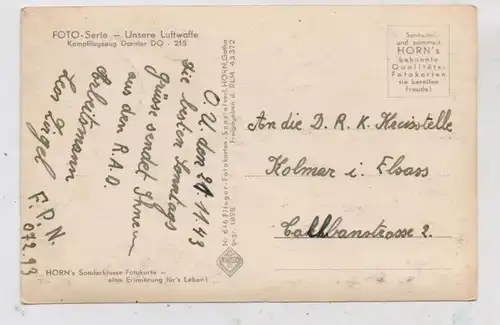 FOTO-Serie – Unsere Luftwaffe
Kampfflugzeug Dornier DO - 215
O. U. den 21 11 43
Die besten Sonntags
grüsse sendet Ihnen
aus dem R.A.D.
Arbeitsmann
F.P.N.
Nr. 646 Flieger-Fotokarten-Spezialverl. HORN, Gotha
Freigegeben d. RLM.
Sammelt
und sammelt
HORN's
bekannte
Qualitäts-
Fotokarten
sie bereiten
Freude!
An die D. R. K. Kreisstelle
Kolmar i. Elsass
2.
HORN's Sonderklasse Fotokarte –
eine Erinnerung für's Leben!